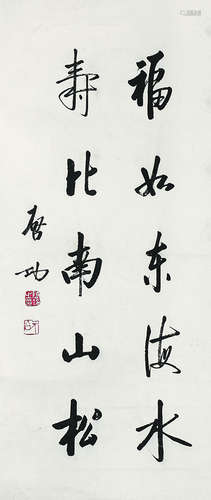 福如东海水
寿比南山松
启功